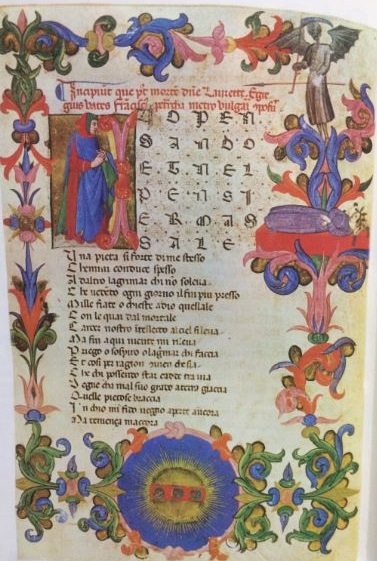 Incipiunt que pt morte dne Laurette. Egre
gius vates Francisc petrarca metro vulgari posuit
I O P E N
S A N D O
E T N E L
P E N S I
E R M A S
S A L E
Una pieta si forte di me stesso
Che mi conduce spesso
Ad altro lagrimar chi non soleua
Che uegendo ogni giorno il fin piu presso
Mille fiate o chieste a dio quellale
Con le quai dal mortale
Carcer nostro intellecto al ciel si leua
Ma fin a qui niente mi rileua
Priego o sospiro o lagrimar chi faccia
E cosi per ragion conuen che sia
Che chi possendo star cadde tra uia
Degno e che mal suo grado a terra giaccia
Quelle pietose braccia
In chio mi fido ueggio aperte ancora
Ma temenza maccora